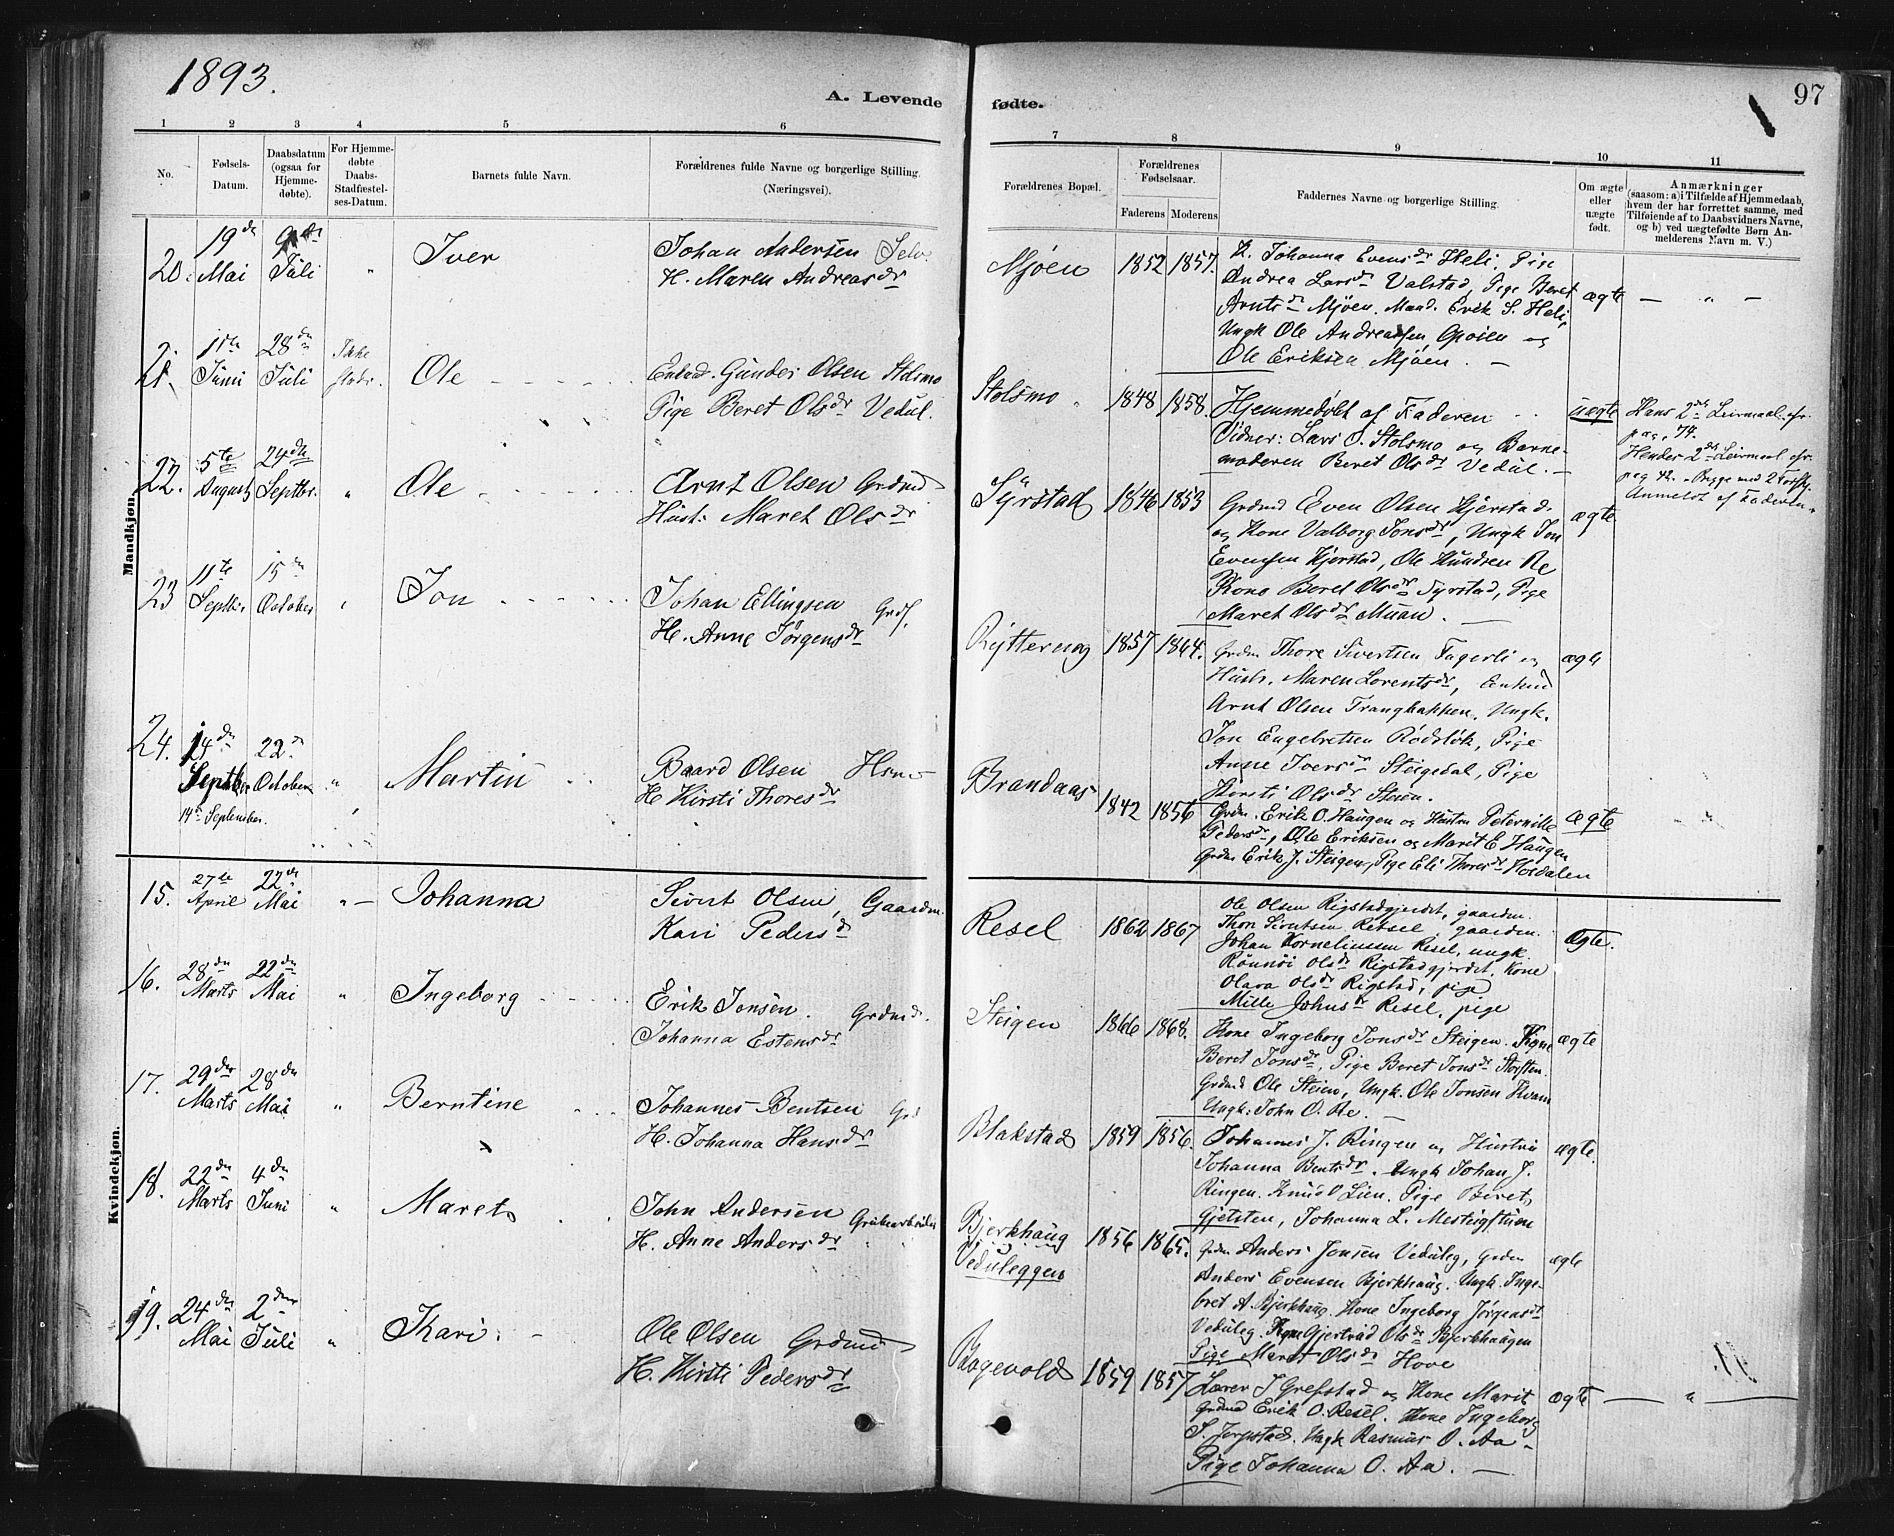 1893.
A. Levende
fødte.
97
1 2 3 4 5 6 7 8 9 10 11
No.
Fødsels-
Datum.
Daabsdatum
(ogsaa for
Hjemme-
døbte).
For Hjemme-
døbte
Daabs-
Stadfæstel-
ses-Datum.
Barnets fulde Navn.
Forældrenes fulde Navne og borgerlige Stilling
(Næringsvei).
Forældrenes Bopæl.
Forældrenes
Fødselsaar.
Faderens Moderens
Faddernes Navne og borgerlige Stilling.
Om ægte
eller
uægte
født.
Anmærkninger
(saasom: a) i Tilfælde af Hjemmedaab,
hvem der har forrettet samme, med
Tilføiende af to Daabsvidners Navne,
og b) ved uægtefødte Børn An-
melderens Navn m. V.)
Mandkjøn.
20. 19de Mai 9de Juli " Iver
Johan Andersen Selv.
H. Maren Andreasdr
Mjøen 1852 1857.
K. Johanna Evensdr Heli, Pige
Andrea Larsdr Valstad, Pige Beret
Arntsdr Mjøen. Mand. Erik S. Heli,
Ungk Ole Andreassen Gjøien og
Ole Eriksen Mjøen. —
ægte — " —
21. 11te Juni 28de Juli Ikke
Ole
Gunder Olsen Stolsmo
Pige Beret Olsdr Vedul.
Stolsmo 1848 1858.
Hjemmedøbt af Faderen
Vidner: Lars O. Stolsmo og Barne-
moderen Beret Olsdr Vedul. —
uægte
Hans 2det Leirmaal cfr.
pag. 74.
Hendes 2det Leirmaal cfr.
pag 42. Begge med 2
Anmeldt af Faderen.
22. 5te August 24de Septbr. " Ole
Arnt Olsen Grdmd
Hust: Maret Olsdr
Syrstad 1846 1853
Grdmd Even Olsen Hjerstad
og Kone Valborg Jonsdr, Ungk Jon
Evensen Hjerstad, Ole Re
Kone Beret Olsdr Syrstad, Pige
Maret Olsdr Muan. —
ægte
23 11te Septbr 15de October " Jon
Johan Ellingsen Grdf.
H. Anne Jørgensdr
Rytterhaug 1857 1864.
Grdm Thore Sivertsen Fagerli og
Hustr. Maren Lorentsdr, Enkmd
Arnt Olsen Trangbakken, Ungk.
Jon Engebretsen Rødsløk, Pige
Anne Iversdr Steigedal, Pige
Kirsti Olsdr Steien.
ægte
24. 14de Septbr 22de October " Martin
14de September.
Baard Olsen Hsm
H Kirsti Thoresdr
Brandaas 1842 1856
Grdm. Erik O. Haugen og Hustru Peternille
Pedersdr, Ole Eriksen og Marit E Haugen
Grdm Erik J. Steigen, Pige Eli Thoresdr Hordalen
ægte
Kvindekjøn.
15. 27de April 22de Mai " — Johanna
Sivert Olsen, Gaardm.
Kari Pedersdr
Resel 1862 1867
Ole Olsen Rigstadgjerdet, gaardm.
Thore Sivertsen Retsel, gaardm.
Johan Korneliussen Resel, ungk
Rønnøi Olsdr Rigstadgjerdet, Kone
Olava Olsdr Rigstad, pige
Mille Johnsdr Resel, pige
Ægte.
16. 28de Marts 22de Mai " Ingeborg
Erik Jonsen. Grdmd.
Johanna Estensdr
Steigen 1866 1868.
Kone Ingeborg Jonsdr Steigen. Kone
Beret Jonsdr, Pige Beret Jonsdr Storsten.
Grdmd Ole Steien, Ungk. Ole Jonsen Kvam
Ungk. John O. Re. —
ægte
17. 29de Marts 28de Mai " Berntine
Johannes Bentsen Grd
H. Johanna Hansdr
Blakstad 1859 1856.
Johannes J. Ringen og Hustru
Johanna Bentsdr. Ungk Johan J.
Ringen. Knud O Lien. Pige Beret
Gjetsten, Johanna L.
ægte.
18. 22de Marts 4de Juni " Maret
John Andersen Grubearbeider
H. Anne Andersdr
Bjerkhaug
Veduleggen
1856 1865.
Grdm Anders Jonsen Veduleg, Grdm
Anders Evensen Bjerkhaug. Ungk. Inge-
bret A. Bjerkhaug. Kone Ingeborg Jørgensdt
Veduleg. Kone Gjertrud Olsdr Bjerkhaugen
Pige Maret Olsdr Hove
ægte
19. 24de Mai 2den Juli " Kari.
Ole Olsen Grdmd
H. Kirsti Pedersdr
Bagevold 1859 1857
Lærer J Grefstad og Kone Marit
Grdmd Erik O. Resel. Kone Ingeborg
S. Jerpstad. Ungk Rasmus O. Aa —
Pige Johanna O. Aa. —
ægte — " —